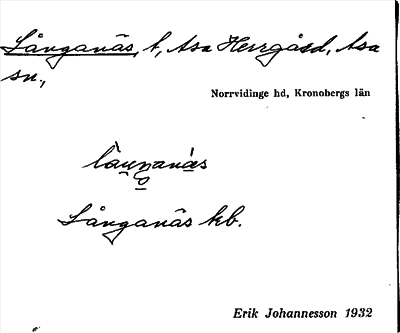 Långanäs, t, Asa Herrgård, Asa
sn.,
Norrvidinge hd, Kronobergs län
Långanäs kb.
Erik Johannesson 1932